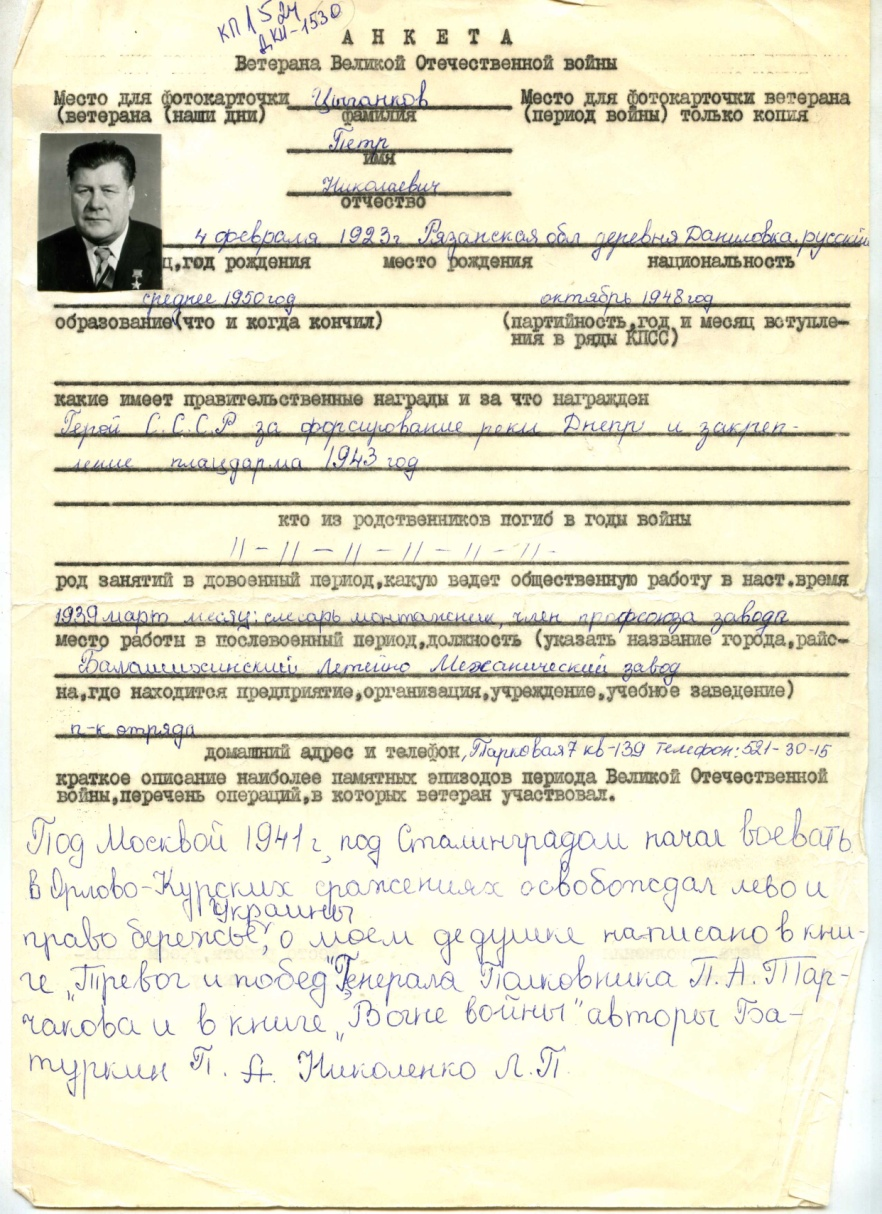 КП 1524
ДКИ-1530
АНКЕТА
Ветерана Великой Отечественной войны
Место для фотокарточки Цыганков Место для фотокарточки ветерана
(ветерана (наши дни) фамилия (период войны) только копия
Петр
имя
Николаевич
отчество
4 февраля 1923г Рязанская обл деревня Даниловка. русский
ц,год рождения место рождения национальность
среднее 1950 год октябрь 1948 год
образование(что и когда кончил) (партийность,год и месяц вступле-
ния в ряды КПСС)
какие имеет правительственные награды и за что награжден
Герой С.С.С.Р за форсирование реки Днепр и закреп-
ление плацдарма 1943 год
кто из родственников погиб в годы войны
11 - 11 - 11 - 11 - 11 - 11 -
род занятий в довоенный период,какую ведет общественную работу в наст.время
1939 март месяц: слесарь монтажник, член профсоюза завода
место работы в послевоенный период,должность (указать название города,райо-
Балашихинский Летейно Механический завод
на,где находится предприятие,организация,учреждение,учебное заведение)
п-к отряда
домашний адрес и телефон, Парковая 7 кв-139 телефон: 521-30-15
краткое описание наиболее памятных эпизодов периода Великой Отечественной
войны,перечень операций,в которых ветеран участвовал.
Под Москвой 1941 г, под Сталинградом начал воевать
в Орлово-Курских сражениях освобождал лево и
Украины
право бережье, о моем дедушке написано в кни-
ге „Тревог и побед" Генерала Полковника П.А. Гор-
чакова и в книге „Вогне войны" авторы Ба-
туркин П. А. Николенко Л.П.